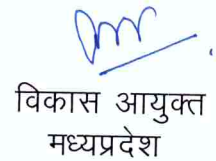 विकास आयुक्त
मध्यप्रदेश